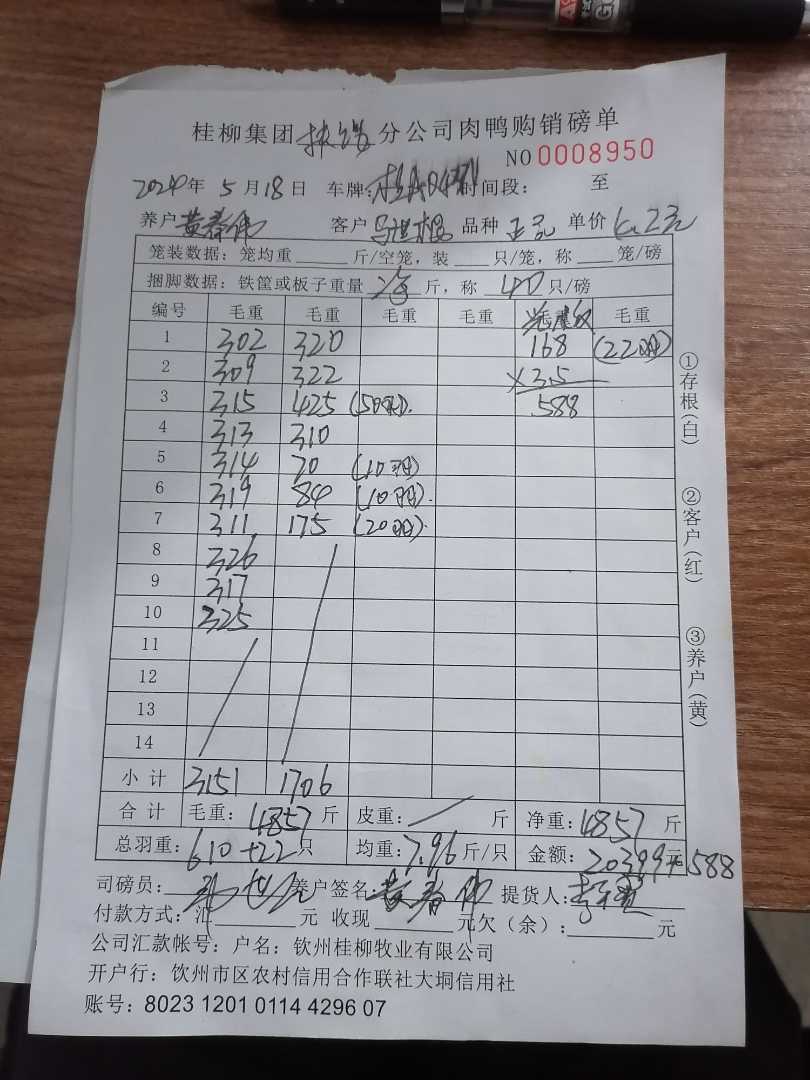 桂柳集团 分公司肉鸭购销磅单
NO 0008950
2024年 5月18日 车牌: 时间段: 至
养户 黄春伟 客户 品种 单价 4.2元
笼装数据: 笼均重 斤/空笼, 装 只/笼, 称 笼/磅
捆脚数据: 铁筐或板子重量 斤, 称 40 只/磅
编号 毛重 毛重 毛重 毛重 毛重
1 302 320 168 (22羽)
2 309 322 ×3.5
3 315 425 (50羽). 588
4 313 310
5 314 70 (10羽)
6 319 84 (10羽).
7 311 175 (20羽).
8 326
9 317
10 325
11
12
13
14
小计 3151 1706
合计 毛重: 4857 斤 皮重: / 斤 净重: 4857 斤
总羽重: 610+22 只 均重: 7.96 斤/只 金额: 20399+588
司磅员: 养户签名: 黄春伟 提货人:
付款方式: 汇 元 收现 元欠(余): 元
公司汇款帐号: 户名: 钦州桂柳牧业有限公司
开户行: 钦州市区农村信用合作联社大垌信用社
账号: 8023 1201 0114 4296 07
①存根(白) ②客户(红) ③养户(黄)